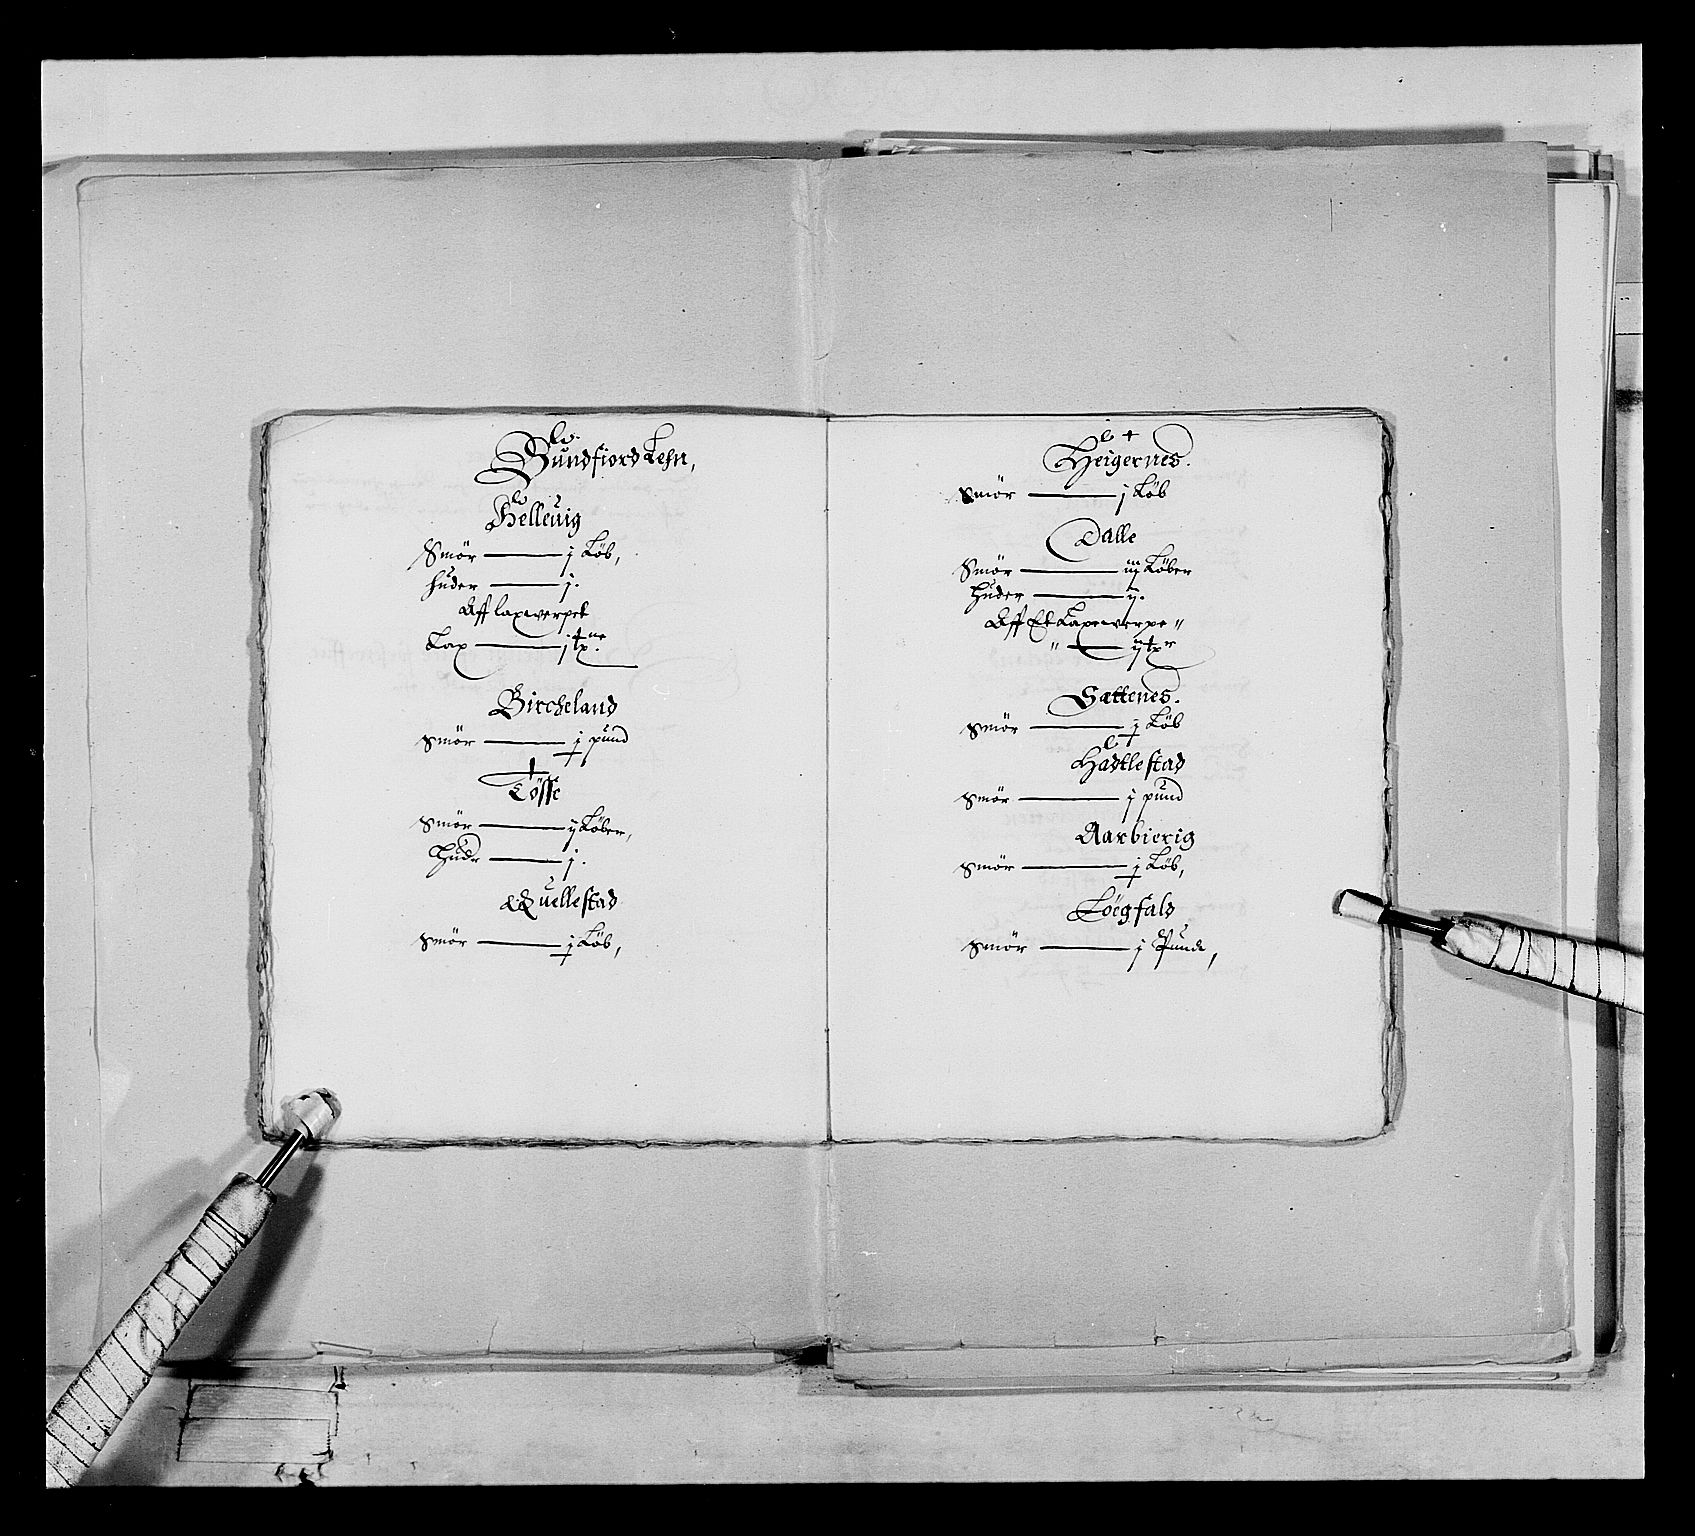 Sundfiord Lehn,
Helleuig
Smör — j Löb,
huder — j.
Aff laxewerpet
Lax — j tr ne
Bircheland
Smör — j pund
Tösse
Smör — ij Löber,
Hudr — j.
Quellestad
Smör — j Löb,
Heigernes.
Smör — j Löb
Dalle
Smör — iij Löber
Huder — ij.
Aff Et Laxewerpe "
" — ij tr
Sættenes.
Smör — j Löb
Hadtlestad
Smör — j pund
Aarbierig
Smör — j Löb,
Löegfald
Smör — j Pund,